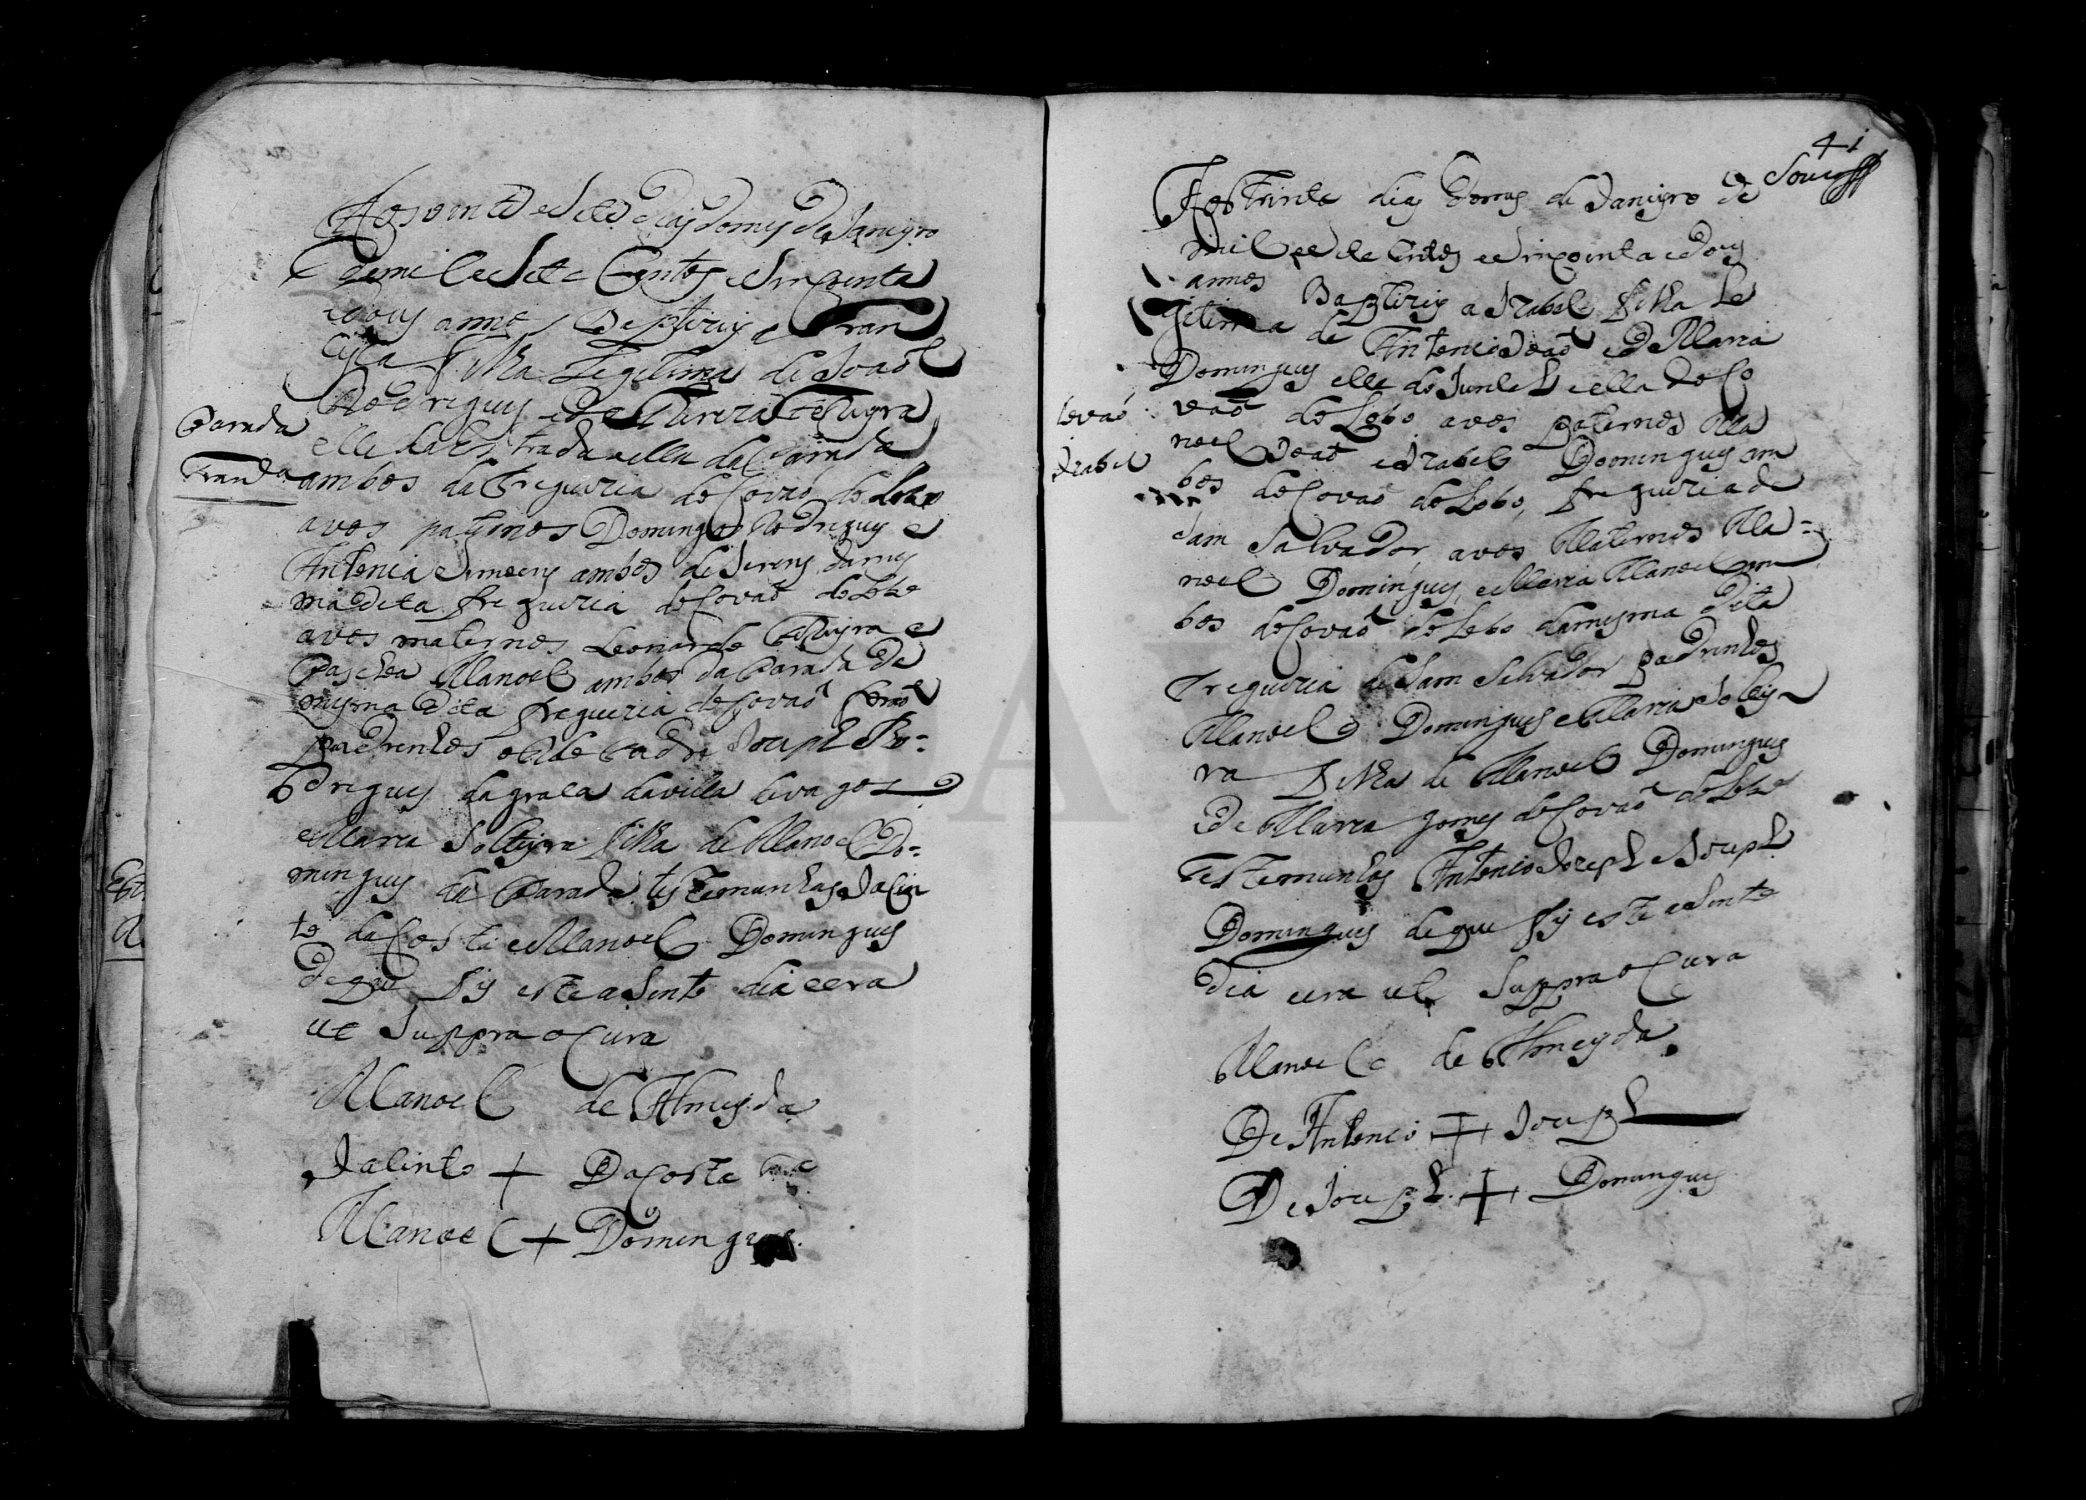 Aos vinte e sete dias do mes de Janeyro
de mil e sete Centos e sincoenta
e dous annos Baptizey a Fran
cisca filha Legitima de Joaõ
Rodrigues e de Thereza
elle da Estrada e ella da Parada
Parada
Fran.da
ambos da Freguezia de Covaõ do Lobo
avos paternos Domingos Rodrigues e
Antonia Simoens ambos de
ma dita freguezia de Covaõ do Lobo
avos maternos Leonardo e
Paschoa Manoel ambos da Parada da
mesma dita freguezia de Covaõ
padrinhos o Padre Joseph Ro=
drigues da graca da villa de vagos
e Maria Solteyra filha de Manoel Do=
mingues da Parada testemunhas Jacin
to da Costa e Manoel Domingues
de que fis este asento dia e era
ut suppra o Cura
Manoel de Almeyda
Jacinto + Da Costa
Manoel + Domingues
41
Aos trinta dias do mes de Janeyro de
mil e sete Centos e sincoenta e dous
annos Baptizey a Izabel filha Le
gitima de Antonio Joaõ e de Maria
Domingues elle do e ella do Co
Covaõ
vaõ do Lobo avos paternos Ma
Izabel
noel Joaõ e Izabel Domingues am
bos do Covaõ do Lobo, freguezia de
Sam Salvador, avos Maternos Ma=
noel Domingues, e Maria Manoel am
bos do Covaõ do Lobo da mesma dita
Freguezia de Sam Salvador padrinhos
Manoel Domingues e Maria Soltey
ra filha de Manoel Domingues
e de Maria gomes do Covaõ do Lobo
Testemunhas Antonio Joseph e Joseph
Domingues de que fis este asento
dia e era ut Suppra o Cura
Manoel de Almeyda
De Antonio + Joseph
De Joseph + Domingues